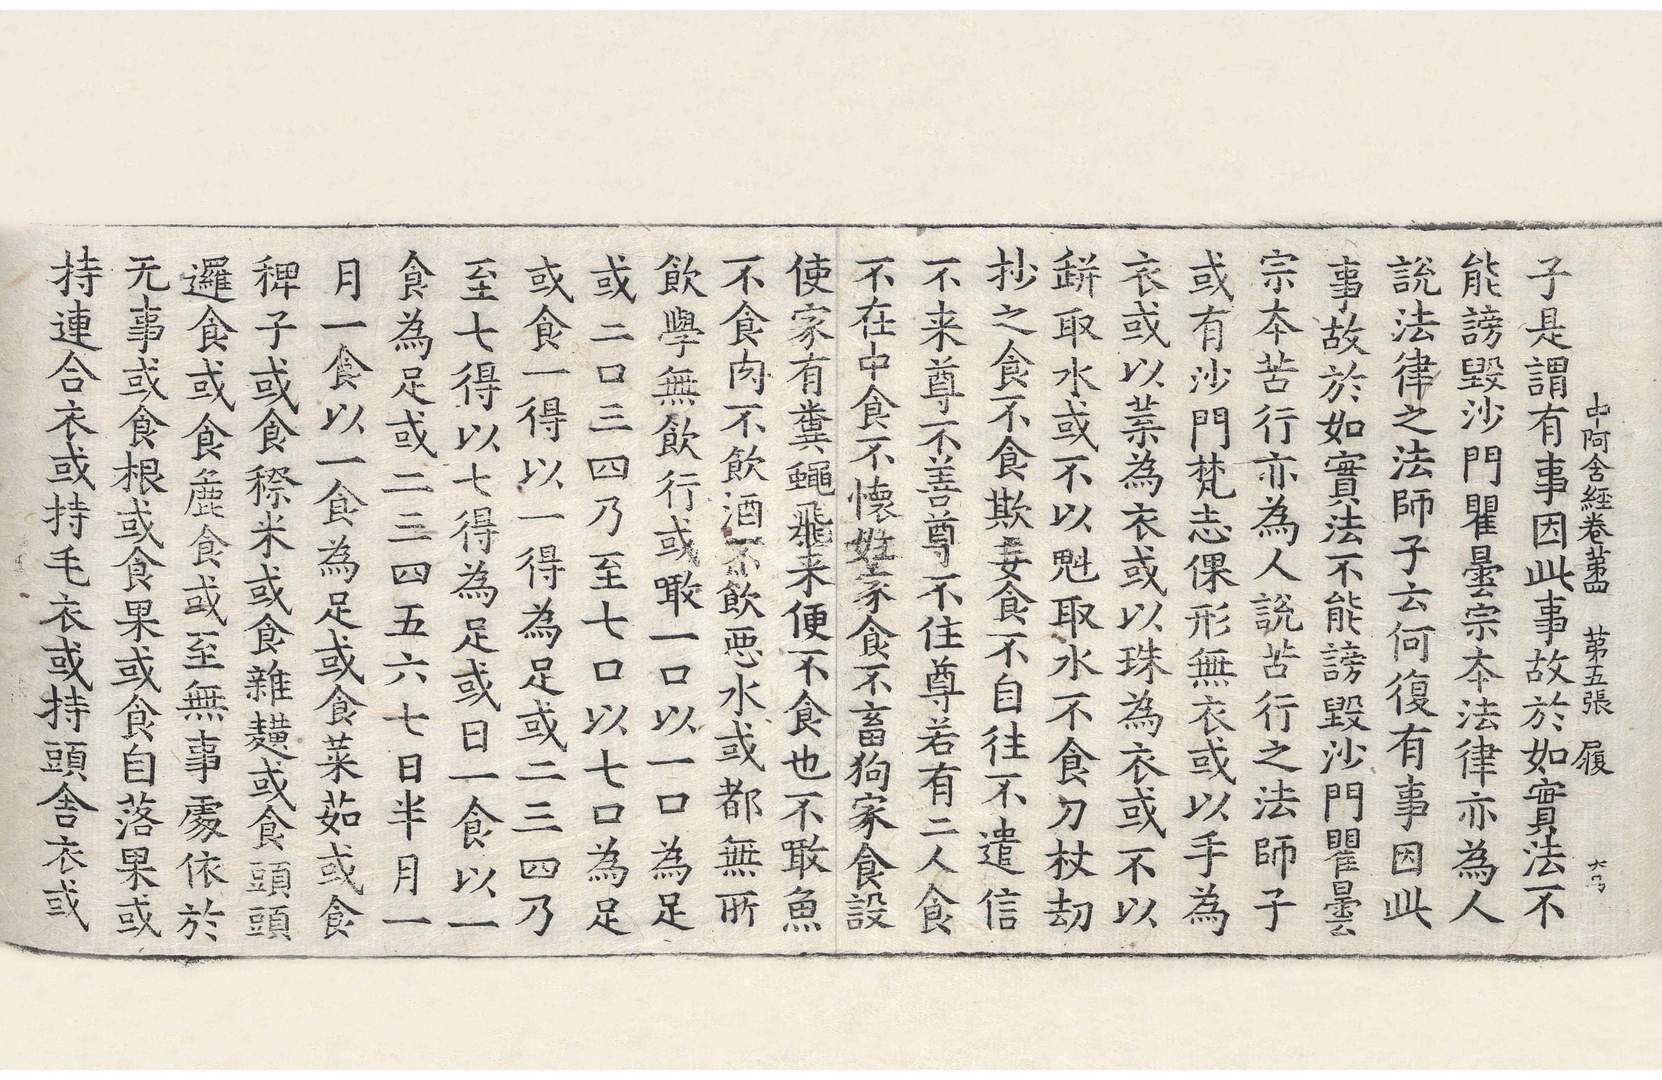 中阿含經卷第四　第五張　履
子是謂有事因此事故於如實法不
能謗毀沙門瞿曇宗本法律亦為人
說法律之法師子云何復有事因此
事故於如實法不能謗毀沙門瞿曇云
宗本苦行亦為人說苦行之法師子
或有沙門梵志倮形無衣或以手為
衣或以葉為衣或以珠為衣或不以
缾取水或不以魁取水不食刀杖劫
抄之食不食欺妄食不自往不遣信
不来尊不善尊不住尊若有二人食
不在中食不懷姙家食不畜狗家食設
使家有糞蠅飛来便不食也不噉魚
不食肉不飲酒不飲惡水或都無所
飲學無飲行或噉一口以一口為足
或二口三四乃至七口以七口為足
或食一得以一得為足或二三四乃
至七得以七得為足或日一食以一
食為足或二三四五六七日半月一
月一食以一食為足或食菜茹或食
稗子或食穄米或食雜䵃或食頭頭
邏食或食麁食或至無事處依於
无事或食根或食果或食自落果或
持連合衣或持毛衣或持頭舍衣或